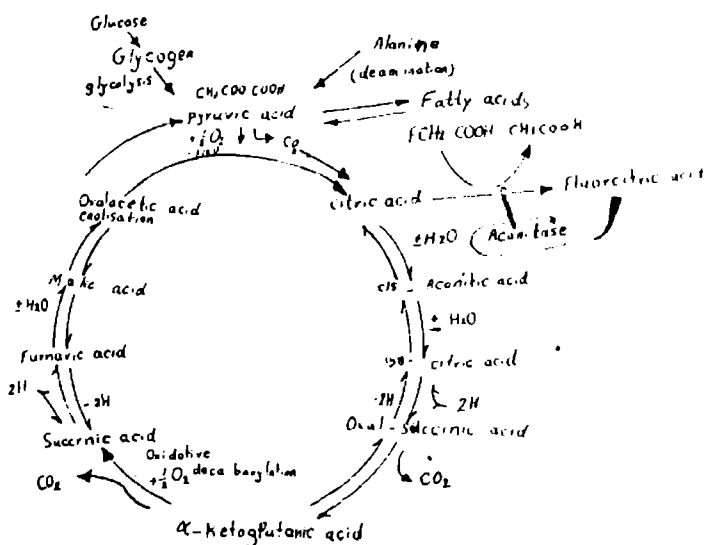 Glucose
Glycogen
glycolysis
Alanine
(deamination)
CH3COO COOH
Pyruvic acid
Fatty acids
+½O2
CO2
FCH2 COOH CH3COOH
Oxalacetic acid
enolisation
Citric acid
Fluorcitric acid
±H2O
Aconitase
Malic acid
cis - Aconitic acid
±H2O
± H2O
Fumaric acid
iso - citric acid
2H
-2H
-2H
2H
Succinic acid
Oxal - Succinic acid
Oxidative
+½O2 decarboxylation
CO2
CO2
α-Ketoglutanic acid